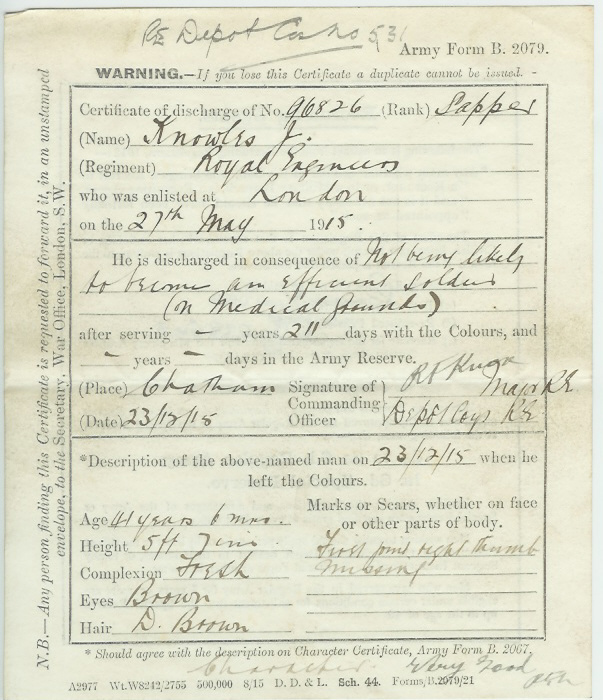 RE Depot Cas no 531
Army Form B. 2079.
WARNING.—If you lose this Certificate a duplicate cannot be issued. -
Certificate of discharge of No. 96826 (Rank) Sapper
(Name) Knowles J.
(Regiment) Royal Engineers
who was enlisted at London
on the 27th May 1915.
He is discharged in consequence of Not being likely
to become an efficient soldier
(on Medical Grounds)
after serving – years 211 days with the Colours, and
– years – days in the Army Reserve.
(Place) Chatham Signature of
Commanding
Officer
Major RE
Depôt Coys RE
(Date) 23/12/15
*Description of the above-named man on 23/12/15 when he
left the Colours.
Age 41 years 6 mos.
Height 5ft 7 ins
Complexion Fresh
Eyes Brown
Hair D. Brown
Marks or Scars, whether on face
or other parts of body.
First joint right thumb
missing
* Should agree with the description on Character Certificate, Army Form B. 2067.
Character. Very Good
A2977 Wt.W8242/2755 500,000 8/15 D. D. & L. Sch. 44. Forms/B.2079/21
N.B.—Any person finding this Certificate is requested to forward it, in an unstamped
envelope, to the Secretary, War Office, London, S.W.